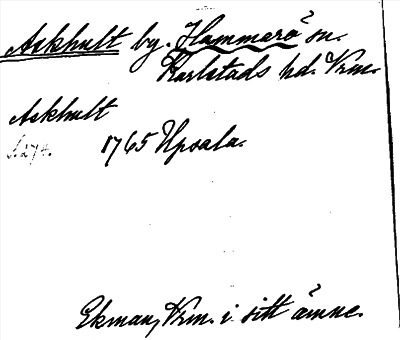 Askhult by. Hammarö sn.
Karlstads hd. Vrm.
Askhult
1765 Upsala.
Ekman, Vrm. i sitt ämne.